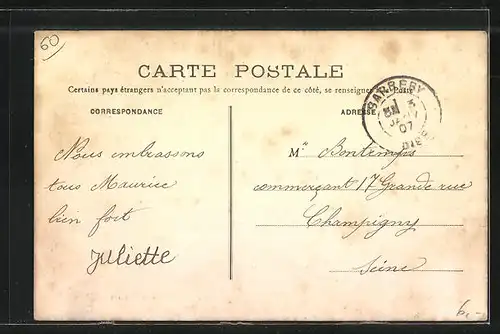 60
CARTE POSTALE
Certains pays étrangers n'acceptant pas la correspondance de ce côté, se renseigner à la Poste
CORRESPONDANCE
ADRESSE
BARBERY
3
07
OISE
Nous embrassons
tous Maurice
bien fort
Juliette
Mr Bontemps
commerçant 17 Grande rue
Champigny
Seine